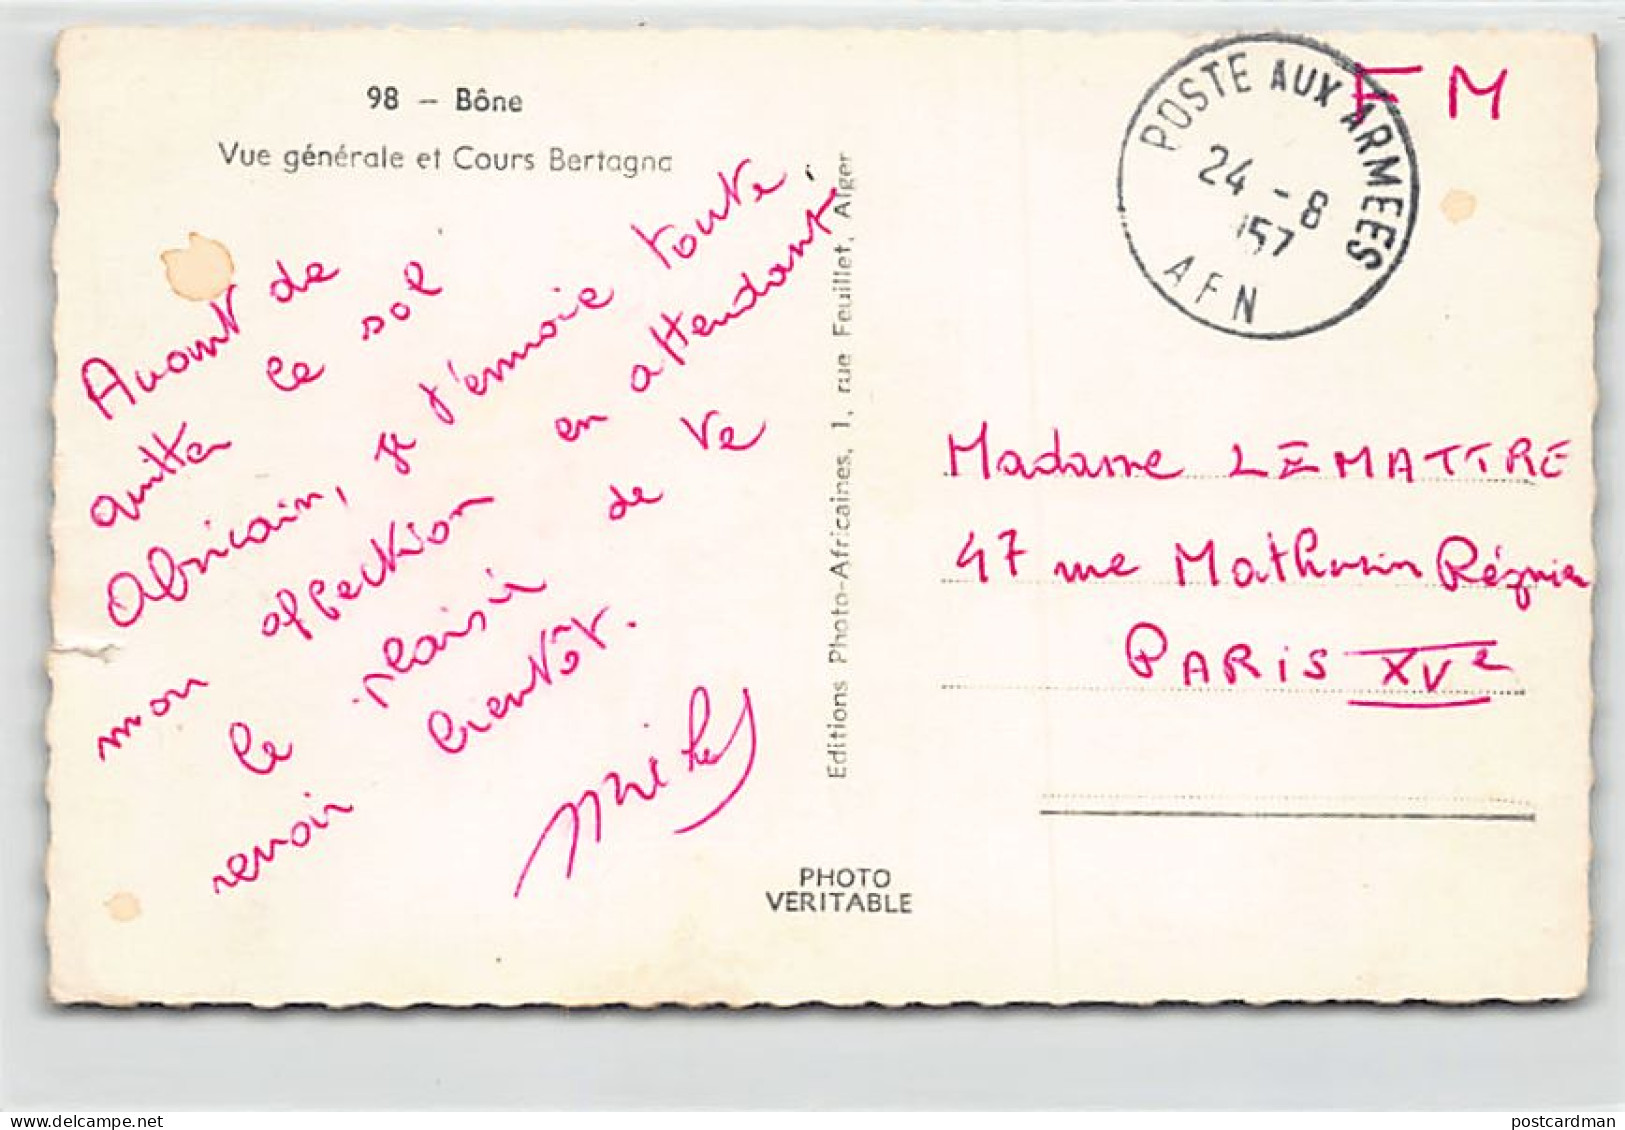 98 – Bône
Vue générale et Cours Bertagna
Avant de
quitter le sol
Africain, je t'envoie toute
mon affection en attendant
le plaisir de te
revoir bientôt.
Editions Photo-Africaines, 1, rue Feuillet, Alger
PHOTO
VERITABLE
F M
POSTE AUX ARMEES
24 - 8
57
AFN
Madame LEMATTRE
47 rue Mathurin Régnier
PARIS XVe
postcardman